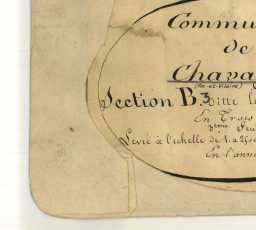 Commu
de
Chava
(Ille-et-Vilaine)
Section B.3 dite l
En Trois
3eme Feu
Levé à l'échelle de 1 à 25
En l'anné